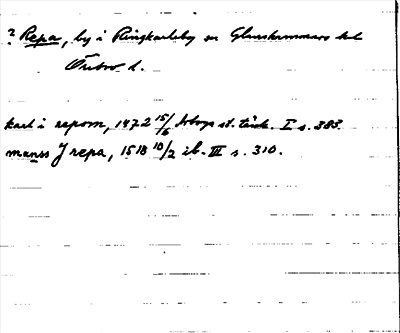 ? Repa, by i Ringkarleby sn Glanshammars hd
Örebro l.
karl i repom, 1472 15/6 Arboga st. tänk. I s. 383.
manss J repa, 1518 10/2 ib. III s. 310.